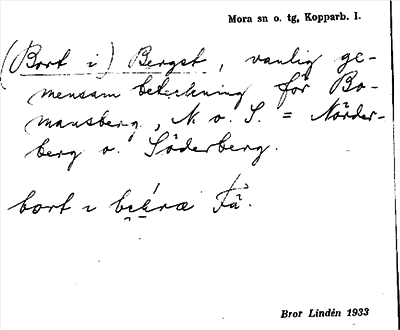 Mora sn o. tg, Kopparb. l.
(Bort i) Bergst, vanlig ge-
mensam beteckning för Bo-
mansberg, N. o. S. = Norder-
berg o. Söderberg.
bort i
Bror Lindén 1933